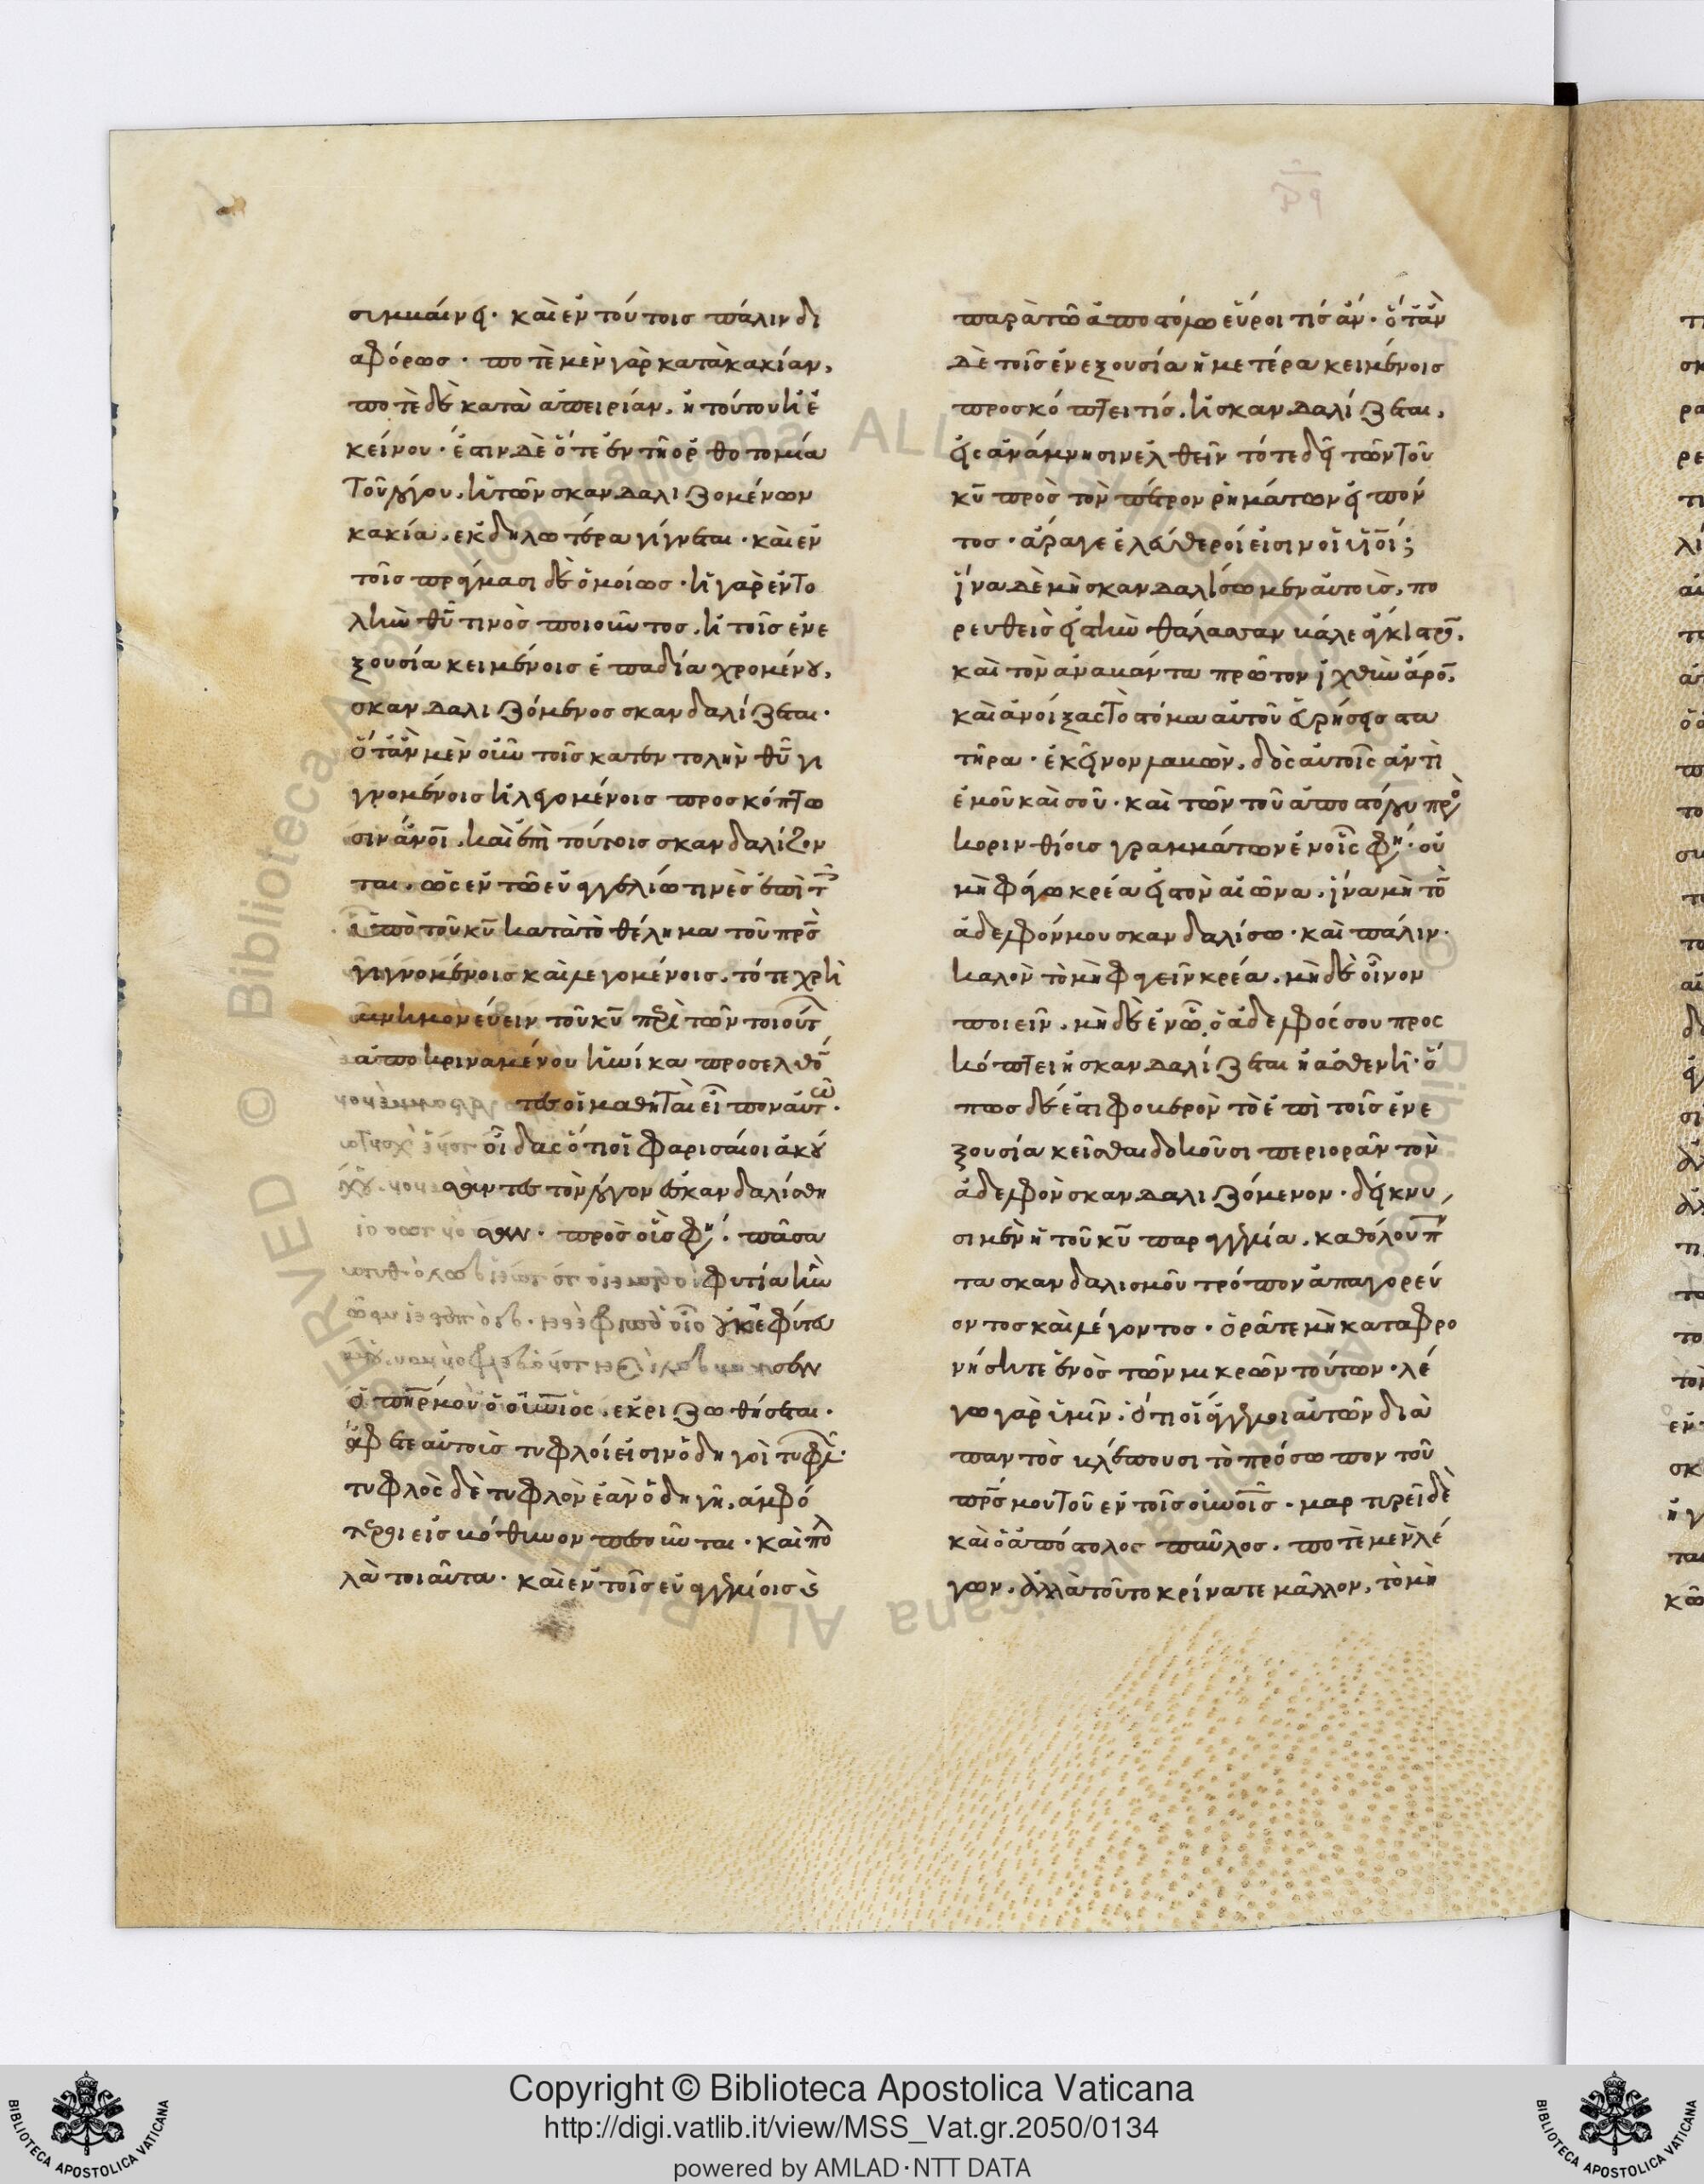 συμβαίνει· καὶ ἐν τούτοις πάλιν δι
αφόρως· ποτὲ μὲν γὰρ κατὰ κακίαν,
ποτὲ δὲ κατὰ ἀπειρίαν, ἢ τούτου ἢ ἐ
κείνου· ἔστιν δὲ ὅτε ἐν τῇ ὀρθοτομία
τοῦ λόγου, ἡ τῶν σκανδαλιζομένων
κακία, ἐκδηλωτέρα γίγνεται· καὶ ἐν
τοῖς πράγμασι δὲ ὁμοίως· ἢ γὰρ ἐντο
λὴν θῦ τινὸς ποιοῦντος, ἢ τοῖς ἐν ἐ
ξουσία κειμένοις ἐπ ἀδία χρομένου,
σκανδαλιζόμενος σκανδαλίζεται·
ὅταν μὲν οὖν τοῖς κατ ἐντολὴν θῦ γι
γνομένοις ἢ λεγομένοις προσκόπτω
σιν ἄνοι, καὶ ἐπὶ τούτοις σκανδαλίζον
ται, ὡς ἐν τῶ εὐαγγελίω τινὲς ἐπὶ τ
ὑπὸ τοῦ κῦ κατὰ τὸ θέλημα τοῦ πρς
γιγνομένοις καὶ λεγομένοις, τότε χρὴ
μνημονεύειν τοῦ κῦ περὶ τῶν τοιούτ
ἀποκριναμένου ἡνίκα προσελθό
τες οἱ μαθηταὶ εἶπον αὐτῶ·
οἶδας ὅτι οἱ φαρισαῖοι ἀκού
σαντες τὸν λόγον ἐσκανδαλίσθη
σαν· πρὸς οὕς φη· πᾶσα
φυτία ἣν
οὐκ ἐφύτευ
σεν
ὁ πηρ μου ὁ οὐνιος, ἐκριζωθήσεται·
ἄφετε αὐτοὺς τυφλοί εἰσιν ὁδηγοὶ τυφλ·
τυφλὸς δὲ τυφλὸν ἐὰν ὁδηγῆ, ἀμφό
τεροι εἰς βόθυνον πεσοῦνται· καὶ πολ
λὰ τοιαῦτα· καὶ ἐν τοῖς εὐαγγελίοις καὶ
παρὰ τῶ ἀποστόλω εὕροι τις ἄν· ὅταν
δὲ τοῖς ἐν ἐξουσία ἡμετέρα κειμένοις
προσκόπτει τίς, ἢ σκανδαλίζεται,
εἰς ἀνάμνησιν ἐλθεῖν τότε δεῖ τῶν τοῦ
κῦ πρὸς τὸν πέτρον ῥημάτων εἰπόν
τος· ἄραγε ἐλεύθεροί εἰσιν οἱ υἱοί;
ἵνα δὲ μὴ σκανδαλίσωμεν αὐτοὺς, πο
ρευθεὶς εἰς τὴν θάλασσαν βάλε ἄγκιστρ,
καὶ τὸν ἀναβάντα πρῶτον ἰχθὺν ἆρο,
καὶ ἀνοίξας τὸ στόμα αὐτοῦ εὑρήσεις στα
τῆρα· ἐκεῖνον λαβὼν, δὸς αὐτοῖς ἀντὶ
ἐμοῦ καὶ σοῦ· καὶ τῶν τοῦ ἀποστόλου προ
κορινθίοις γραμμάτων ἐν οἷς φη· οὐ
μὴ φάγω κρέα εἰς τὸν αἰῶνα, ἵνα μὴ τὸ
ἀδελφόν μου σκανδαλίσω· καὶ πάλιν·
καλὸν τὸ μὴ φαγεῖν κρέα, μὴ δὲ οἶνον
ποιεῖν, μὴ δὲ ἐν ὧ ὁ ἀδελφός σου προς
κόπτει ἢ σκανδαλίζεται ἢ ἀσθενεῖ· ὅ
πως δὲ ἔστι φοβερὸν τὸ ἐπὶ τοῖς ἐν ἐ
ξουσία κεῖσθαι δοκοῦσι περιορᾶν τὸν
ἀδελφὸν σκανδαλιζόμενον· δείκνυ
σι μὲν ἡ τοῦ κῦ παραγγελία, καθόλου π
τα σκανδαλισμοῦ τρόπον ἀπαγορεύ
οντος καὶ λέγοντος· ὁρᾶτε μὴ καταφρο
νήσητε ἑνὸς τῶν μικρῶν τούτων· λέ
γω γὰρ ὑμῖν· ὅτι οἱ ἄγγελοι αὐτῶν διὰ
παντὸς βλέπουσι τὸ πρόσωπον τοῦ
πρς μου τοῦ ἐν τοῖς οὐνοῖς· μαρτυρεῖ δὲ
καὶ ὁ ἀπόστολος παῦλος· ποτὲ μὲν λέ
γων, ἀλλὰ τοῦτο κρίνατε μᾶλλον, τὸ μὴ
Copyright © Biblioteca Apostolica Vaticana
http://digi.vatlib.it/view/MSS_Vat.gr.2050/0134
powered by AMLAD·NTT DATA
BIBLIOTECA APOSTOLICA VATICANA
BIBLIOTECA APOSTOLICA VATICANA